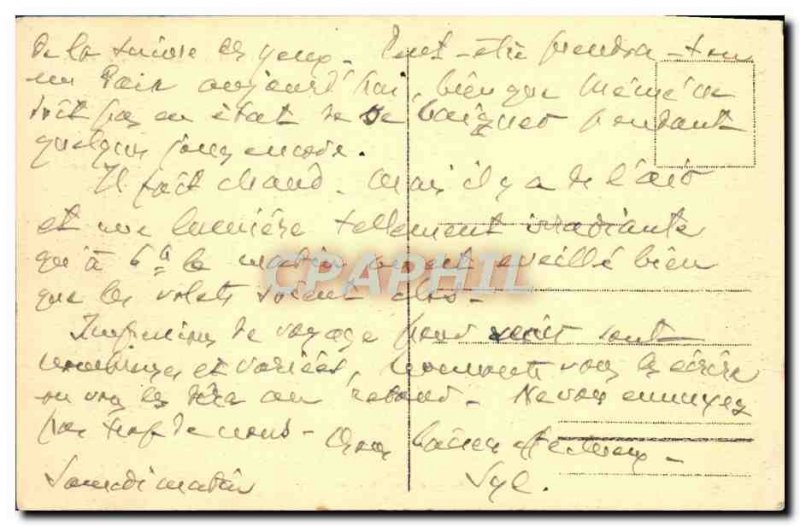 de la suivre des yeux - Peut-être prendra-t-on
un bain aujourd'hui, bien que Mémé ne
soit pas en état de se baigner pendant
quelques jours encore.
Il fait chaud. Mais il y a de l'air
et une lumière tellement irradiante
qu'à 6h le matin on est éveillé bien
que les volets soient clos -
CPAPHIL
Impressions de voyage sont
nombreuses et variées, vous les écrire
ou vous les dire au retour. Ne vous ennuyez
pas trop de nous - Bons baisers affectueux -
Samedi matin
Syl.